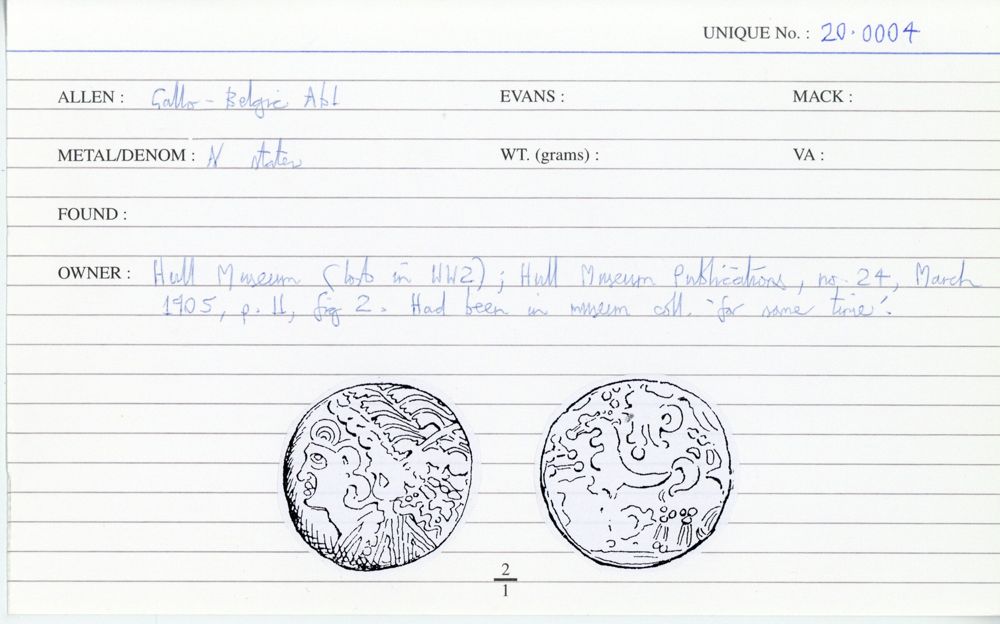 UNIQUE No. : 20.0004
ALLEN : Gallo-Belgic Ab1 EVANS : MACK :
METAL/DENOM : N stater WT. (grams) : VA :
FOUND :
OWNER : Hull Museum (lost in WW2); Hull Museum Publications, no. 24, March
1905, p. 11, fig 2. Had been in museum coll. 'for some time'.
2
1